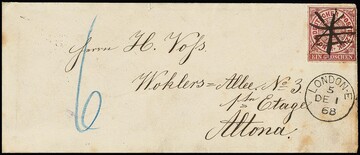 Herrn H. Voss
Wohlers=Allee, No 3.
1ste Etage
Altona.
6
EIN GROSCHEN
LONDON-E
5
DE 1
68